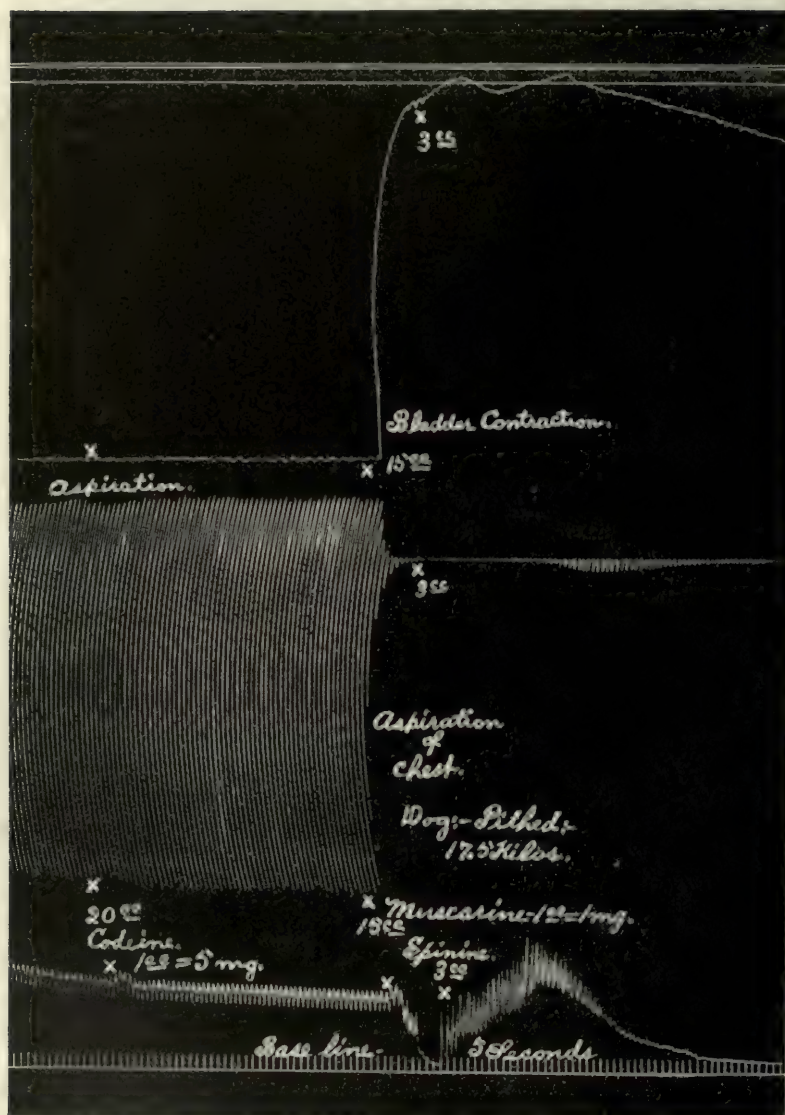 x
3 cc
Bladder Contraction.
x 15 cc
Aspiration.
x
3 cc
Aspiration
of
Chest.
Dog:- Pithed:-
17.5 Kilos.
x
20 cc
Codeine.
x 1cc = 5 mg.
x
Muscarine-1cc=1mg.
Epinine.
3 cc
x x
Base line- 5 Seconds